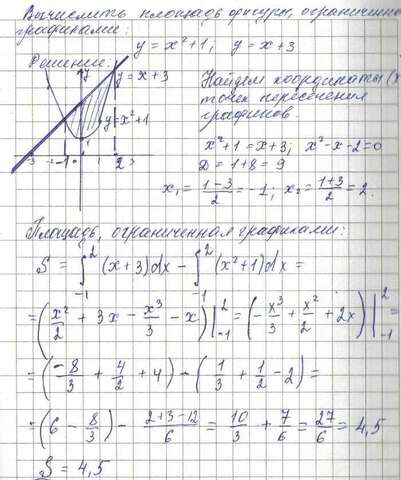 Вычислить площадь фигуры, ограниченно
графиками:
y = x² + 1; y = x + 3
Решение:
y
y = x + 3
y = x² + 1
-3 -2 -1 1 2 3
Найдем координаты (x
точек пересечения
графиков.
x² + 1 = x + 3; x² - x - 2 = 0
D = 1 + 8 = 9
x₁ = (1 - 3)/2 = -1; x₂ = (1 + 3)/2 = 2.
Площадь, ограниченная графиками:
S = ∫₋₁² (x + 3) dx - ∫₋₁² (x² + 1) dx =
= (x²/2 + 3x - x³/3 - x) |₋₁² = (-x³/3 + x²/2 + 2x) |₋₁² =
= (-8/3 + 4/2 + 4) - (1/3 + 1/2 - 2) =
= (6 - 8/3) - (2 + 3 - 12)/6 = 10/3 + 7/6 = 27/6 = 4,5
S = 4,5